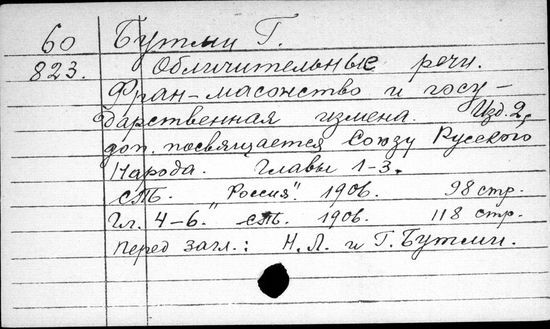 60 Бутми Г.
823. Обличительные речи.
Фран-масонство и госу-
дарственная измена. Изд. 2,
доп. посвящается Союзу Русского
Народа. Главы 1-3.
СПб. "Россия". 1906. 98 стр.
Гл. 4-6. СПб. 1906. 118 стр.
Перед загл.: Н.Л. и Г. Бутми.